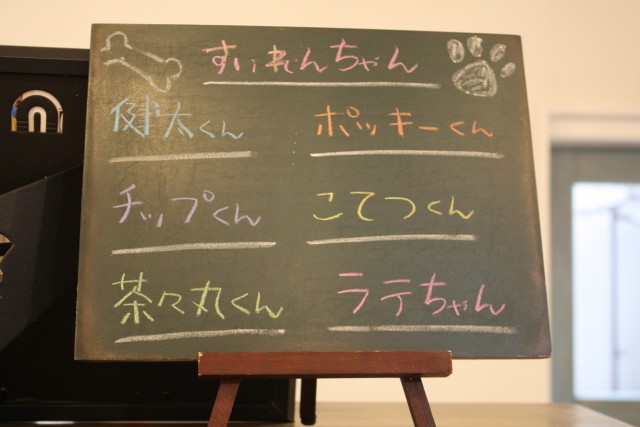 すいれんちゃん
健太くん
ポッキーくん
チップくん
こてつくん
茶々丸くん
ラテちゃん